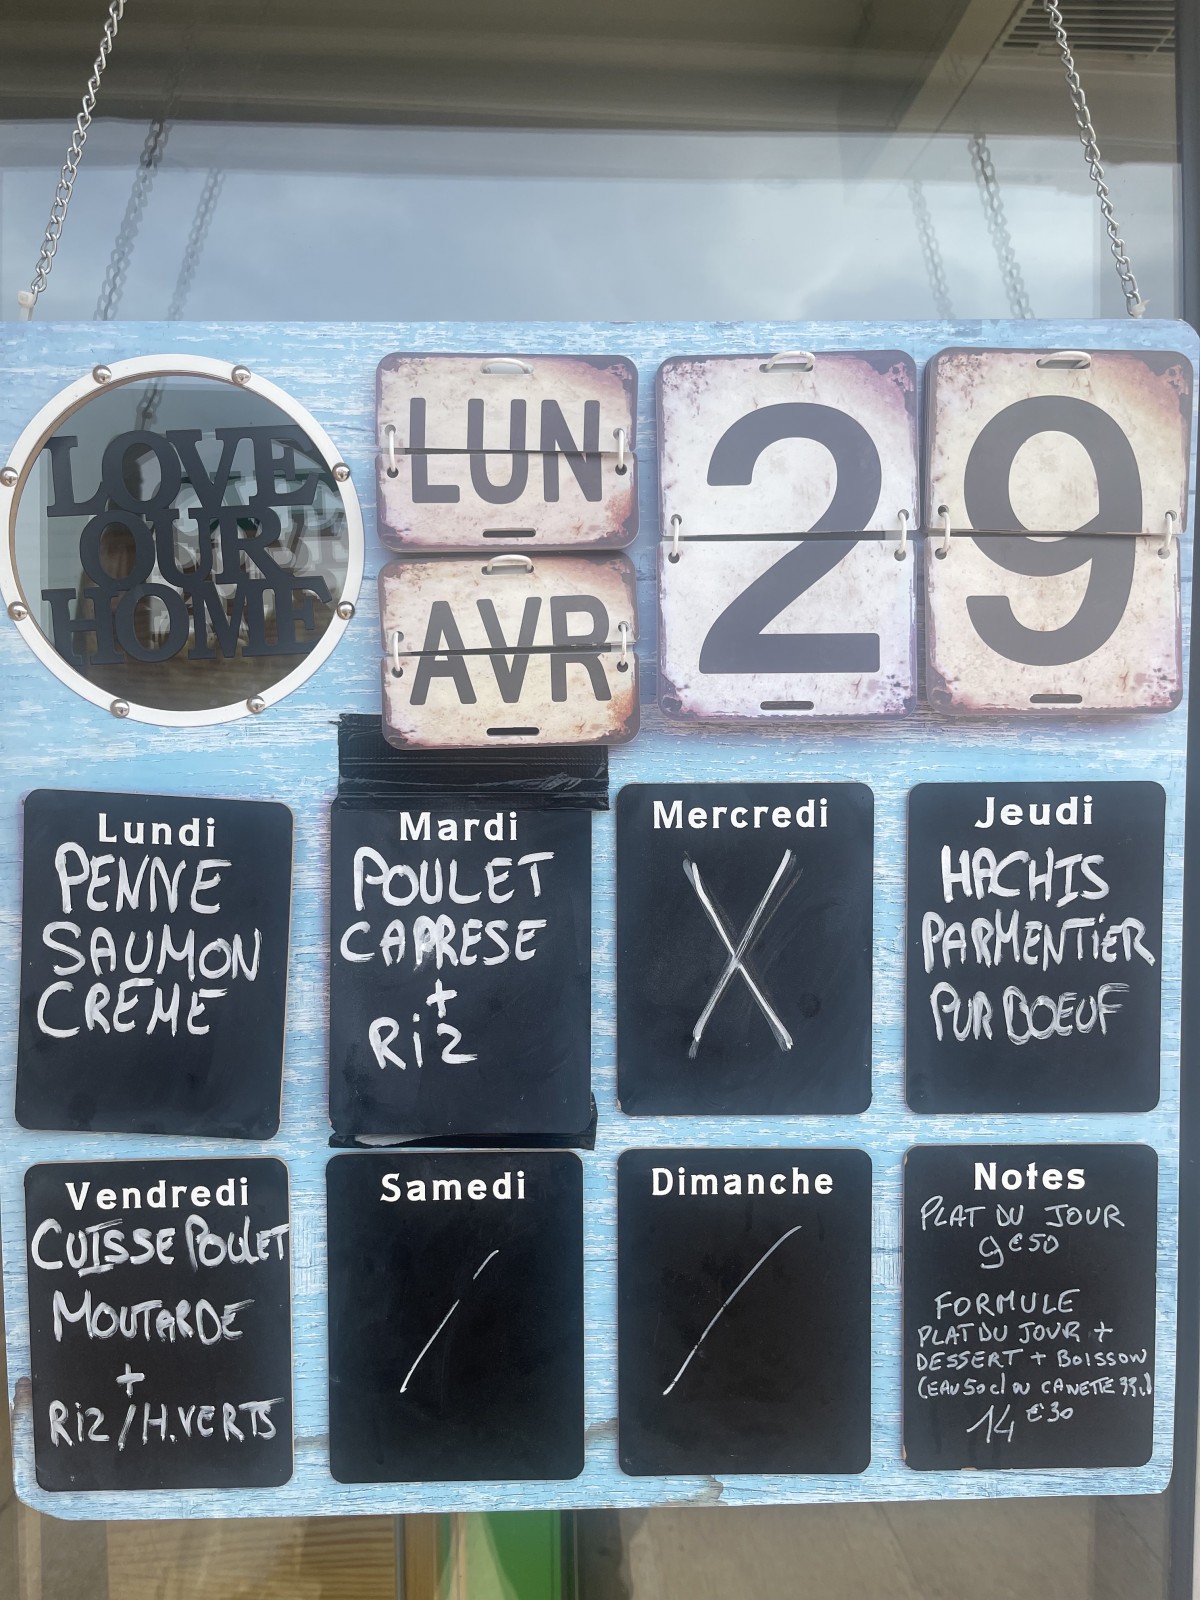 LOVE
OUR
HOME
LUN
AVR
29
Lundi
PENNE
SAUMON
CREME
Mardi
POULET
CAPRESE
+
Riz
Mercredi
X
Jeudi
HACHIS
PARMENTiER
PUR BOEUF
Vendredi
CUISSE POULET
MOUTARDE
+
Riz/H.VERTS
Samedi
/
Dimanche
/
Notes
PLAT DU JOUR
9€50
FORMULE
PLAT DU JOUR +
DESSERT + BOISSON
(EAU 50cl OU CANETTE 33cl)
14€30